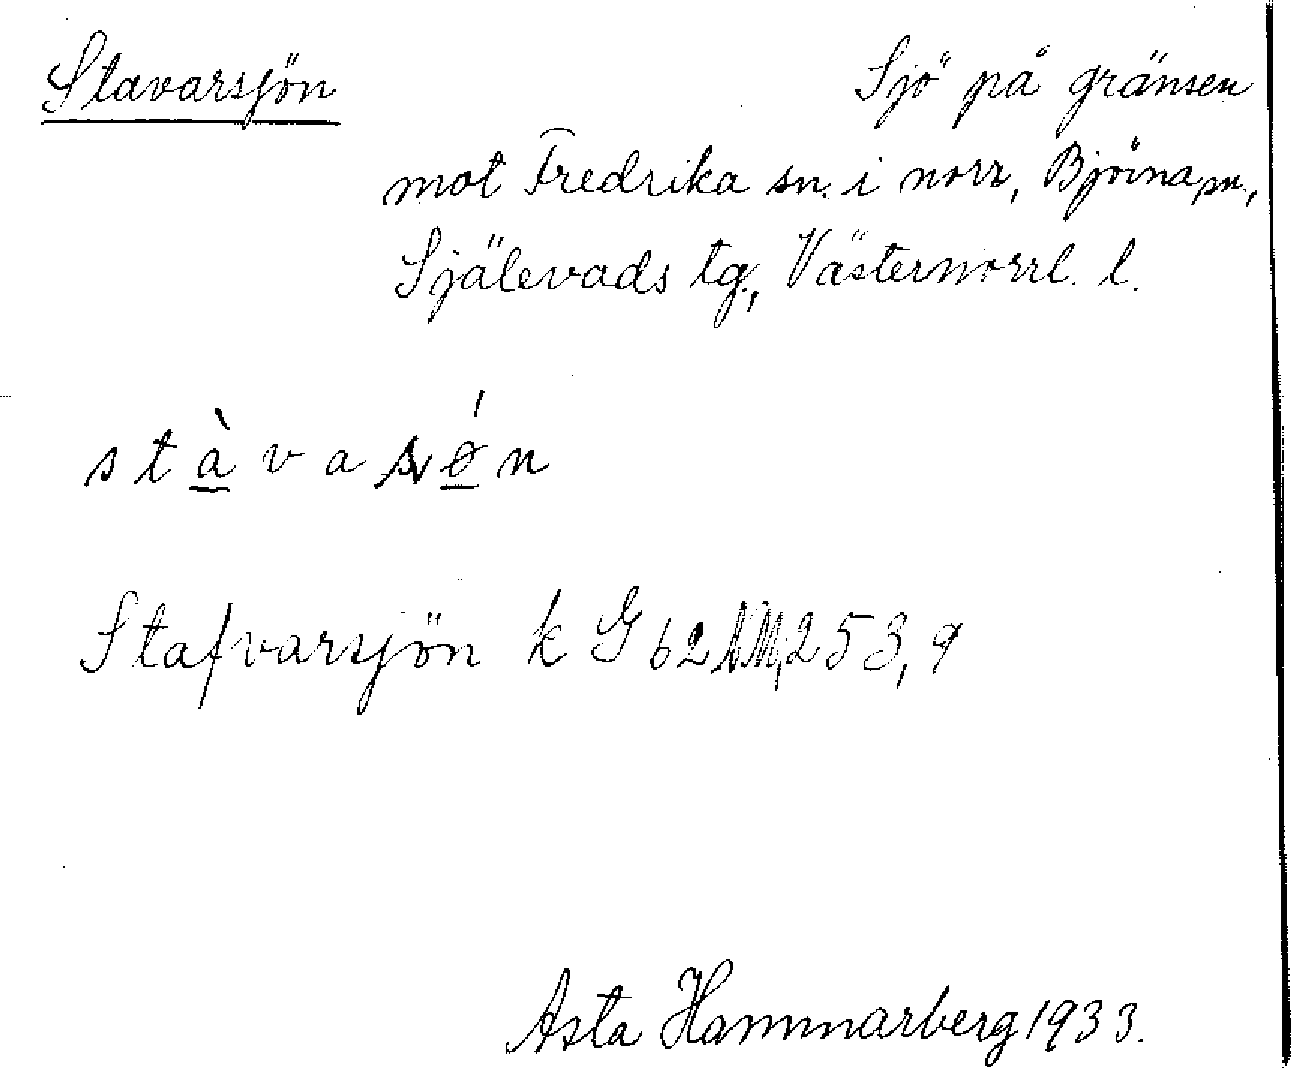 Stavarsjön Sjö på gränsen
mot Fredrika sn. i norr, Björna sn.,
Själevads tg., Västernorrl. l.
stàvasǿn
Stafvarsjön k G 62 253,9
Asta Hammarberg 1933.